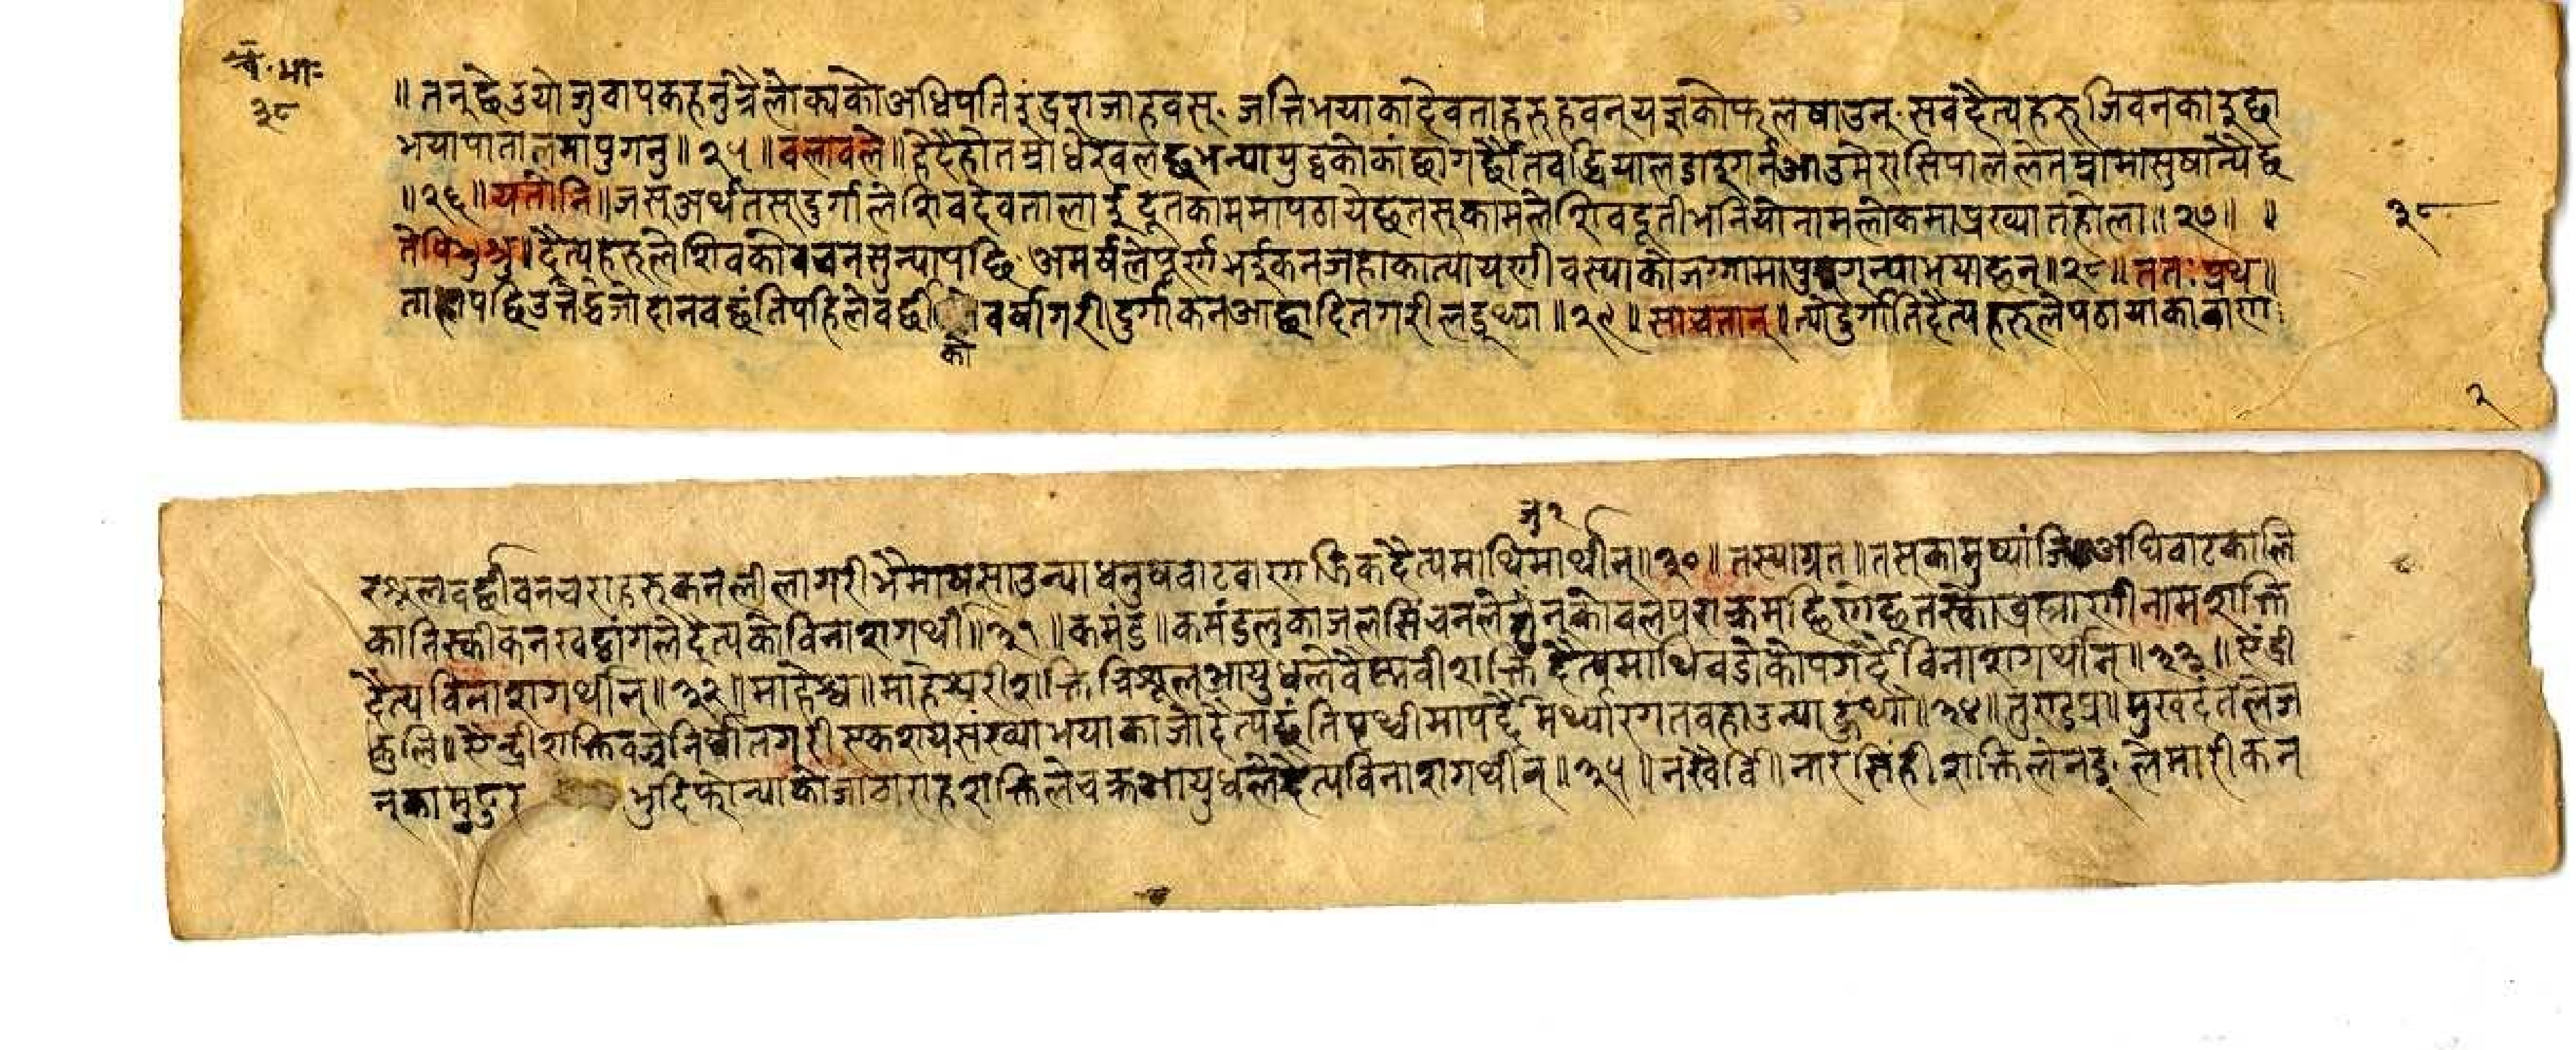 चं. भा.
३८
॥ तनूछेउ यो जुवाप कहनु त्रैलोक्यको अधिपति इंद्र राजा हवस्. जत्ति भयाका देवताहरु हवन् यज्ञको फल षाउन्. सव दैत्यहरु जिवनका इछा
भया पातालमा पुगनु ॥ २५ ॥ वलावले ॥ हे दैत्य हो तम्रा धेरै वल छ भन्या युद्धको कांछा गर्छौ त वढियाल डाइ गर्न आउ मेरा सिपालले तम्रा मासु षान्यै छ
॥ २६ ॥ यतोनि ॥ जस् अर्थ तस् दुर्गाले शिव देवतालाई दूत काममा पठायेछ तस् कामले शिवदूती भनि यो नाम लोकमा प्रख्यात होला ॥ २७ ॥ ॥
३८
तेपि श्रु ॥ दैत्यहरुले शिवको वचन सुन्या पछि अमर्षले पूर्ण भईकन जहा कात्यायणी वस्याको जग्गामा पुगन्या भयाछन् ॥ २८ ॥ ततः प्रथ ॥
ताहा पछि उनैद्व जो दानव छं ति पहिले वर्छी वर्षा गरी दुर्गाकन आछादित गरी लदथ्या ॥ २९ ॥ सा च तान् ॥ त्यो दुर्गा ति दैत्यहरुले पठायाका वाण
को
२
जु १
र शूल वर्छी वन चराहरुकन लीला गरी भैमा षसाउन्या धनुषवाट वाण झिक दैत्यमाथि मार्थीन् ॥ ३० ॥ तस्याग्रत ॥ तसका मुष्यांजि अघिवाट कालि
का निस्कीकन खट्वांगले दैत्यको विनाश गर्थी ॥ ३१ ॥ कमंडु ॥ कमंडलुका जल सिंचनले उनको वल पराक्रम छिणछ तस्को व्रह्माणी नाम शक्ति
दैत्य विनाश गर्थीन् ॥ ३२ ॥ माहेश्व ॥ माहेश्वरी शक्ति त्रिशूल आयुधले वैष्णवी शक्ति दैत्यमाथि वडो कोप गर्दै विनाश गर्थीन् ॥ ३३ ॥ ऐंद्री
कुलि ॥ ऐन्द्री शक्ति वज्र निर्घात गरी एक शय संख्या भयाका जो दैत्य छं ति पृथ्वीमा पर्दै मर्थ्या रगत वहाउन्या हुथ्यो ॥ ३४ ॥ तुण्डप्र ॥ मुख दंतले ज
नका मुटुर भुदि फोन्याको जो वाराह शक्तिले चक्र आयुधले दैत्य विनाश गर्थीन् ॥ ३५ ॥ नखैर्वि ॥ नारसिंही शक्तिले नङ्ले मारीकन